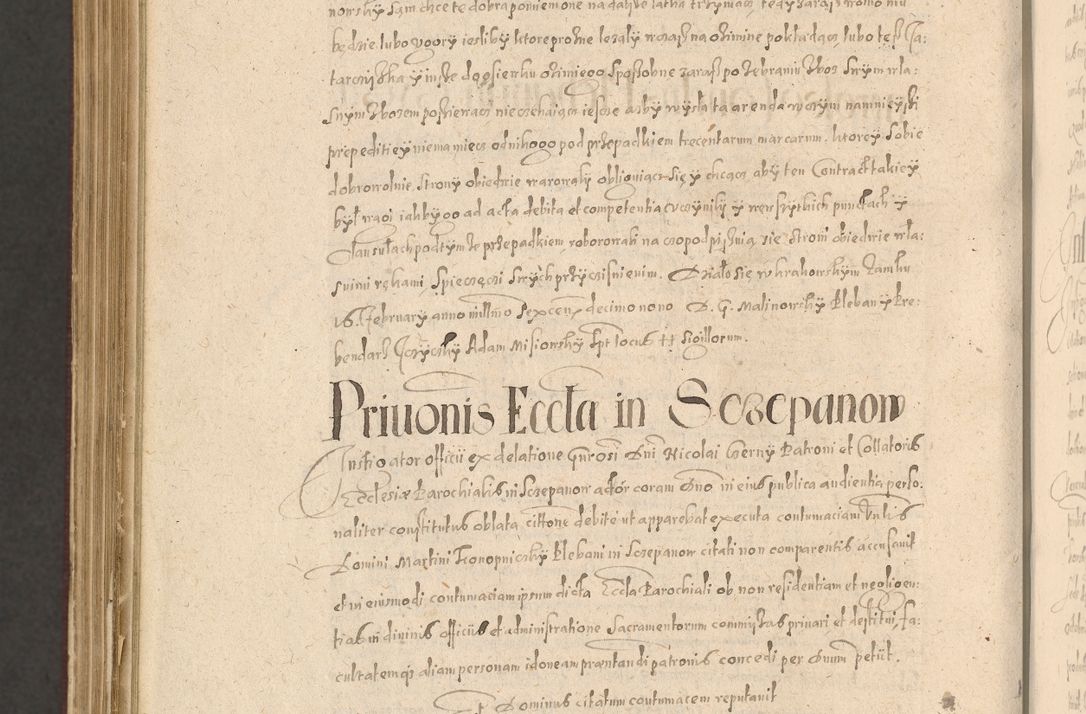 będzie lubo vgory iesliby ktore prozne lezaly wczas na ozimine pokładacz lubo tesz Ja:
tarczyską y insze do osiewku ozimiego sposobne zaraz po zebraniu zboz swym wła:
snym zbozem posiewacz nie czekaiącz iescze azby wyszła ta arenda w czym namnieyszi
prepeditiey nie ma miecz od nikogo pod przepadkiem trecentarum marcarum. ktorey sobie
dobrowolnie strony obiedwie warowały obligując się y chcącz aby ten Contract takiey
był wagi iakby go ad acta debita et competentia uczynily y we wszytkich punctach y
Clausulach pod tymze przepadkiem roborowali na czo podpisuią sie stroni obiedwie wła:
snimi rękami, spieczęczi swych przycisnieniem. Działo się w krakowskym zamku
16. February anno millmo Sexcenx decimo nono D. G. Malinowsky Pleban y Pre:
bendarz Jczycsky Adam Misiowsky spt locus tt sigillorum.
Priuonis Eccla in Sczepanow
Instigator officii ex delatione Gnrosi Dni Nicolai Czerny Patroni et Collatoris
Ecclesiæ Parochialis in Sczepanow actor coram Dno in eius publica audientia perso:
naliter constitutus oblata cittone debite ut apparebat executa contumaciam Vnlis
Domini Martini Konopniczky Plebani in Sczepanow citati non comparentis accusauit
et in eiusmodi contumaciam ipsum dicta Eccla Parochiali ob non residentiam et negligen:
tias in diuinis officiis et administratione Sacramentorum commissas priuari et destitui, fa:
cultatemq aliam personam idoneam præntandi patronis concedi per Dnum petiit.
Et Dominus citatum contumacem reputauit